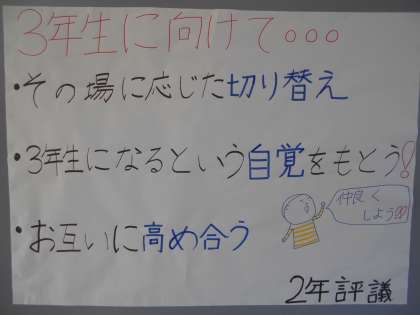 3年生に向けて。。。
・その場に応じた切り替え
・3年生になるという自覚をもとう!
仲良く
しよう!!
・お互いに高め合う
2年評議